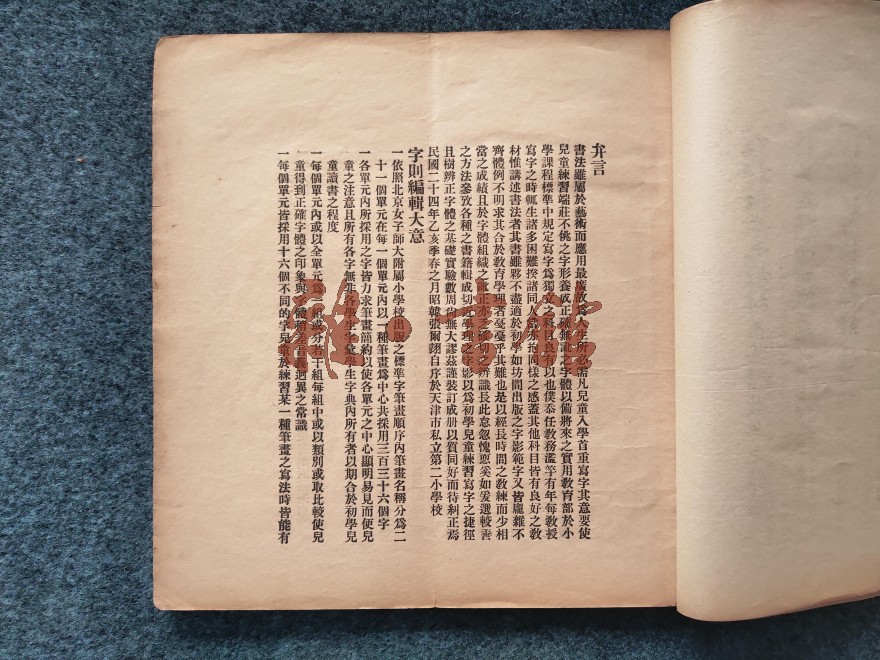 弁言
書法雖屬於藝術而應用最廣故為人生所必需凡兒童入學首重寫字其意要使
兒童練習端莊不佻之字形養成正確無訛之字體以備將來之實用教育部於小
學課程標準中規定寫字為獨立之科目良有以也僕忝任教務濫竽有年每教授
寫字之時輒生諸多困難揆諸同人亦抱同樣之感蓋其他科目皆有良好之教
材惟講述書法者其書雖夥不盡適於初學如坊間出版之字影範字又皆龐雜不
齊體例不明求其合於教育學理者戞戞乎其難也是以經長時間之教練而少相
當之成績且於字體組織之訛正亦乏確切之辨識長此怠忽愧恧奚如爰選較善
之方法參攷各種之書籍輯成切近學理之字影以為初學兒童練習寫字之捷徑
且樹辨正字體之基礎實驗數周尚無大謬茲謹裝訂成册以質同好而待糾正焉
民國二十四年乙亥季春之月昭韓張爾翊自序於天津市私立第二小學校
字則編輯大意
一依照北京女子師大附屬小學校出版之標準字筆畫順序內筆畫名稱分為二
十一個單元在每一個單元內以一種筆畫為中心共採用三百三十六個字
一各單元內所採用之字皆力求筆畫簡約以使各單元之中心顯明易見而便兒
童之注意且所有各字無非各學生字彙學生字典內所有者以期合於初學兒
童讀書之程度
一每個單元內或以全單元為一組或分若干組每組中或以類別或取比較使兒
童得到正確字體之印象與字體相書義迥異之常識
一每個單元皆採用十六個不同的字兒童於練習某一種筆畫之寫法時皆能有